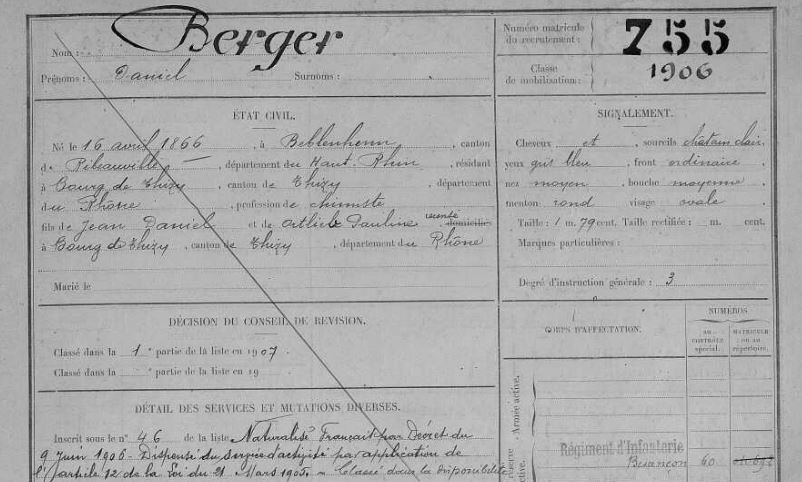 Berger
Nom :
Prénoms : Daniel Surnoms :
Numéro matricule du recrutement : 755
Classe de mobilisation : 1906
ÉTAT CIVIL.
Né le 16 avril 1866, à Beblenheim, canton
de Ribeauvillé, département du Haut-Rhin, résidant
à Bourg de Thizy, canton de Thizy, département
du Rhône, profession de chimiste
fils de Jean Daniel et de Ortlieb Pauline, domiciliés
à Bourg de Thizy, canton de Thizy, département du Rhône
Marié le
SIGNALEMENT.
Cheveux et , sourcils châtain clair,
yeux gris bleu , front ordinaire ,
nez moyen , bouche moyenne ,
menton rond visage ovale
Taille : 1 m. 79 cent. Taille rectifiée : m. cent.
Marques particulières :
Degré d'instruction générale : 3
DÉCISION DU CONSEIL DE REVISION.
Classé dans la 1e partie de la liste en 1907.
Classé dans la e partie de la liste en 19
DÉTAIL DES SERVICES ET MUTATIONS DIVERSES.
Inscrit sous le n° 46 de la liste Naturalisé Français par Décret du
9 juin 1906 - Dispensé du service d'activité par application de
l'article 12 de la Loi du 21 Mars 1905. - Classé dans la disponibilité
CORPS D'AFFECTATION.
NUMÉROS
AU CONTROLE spécial.
MATRICULE OU AU répertoire.
Armée active.
réserve
active.
Régiment d'Infanterie
Besançon 60